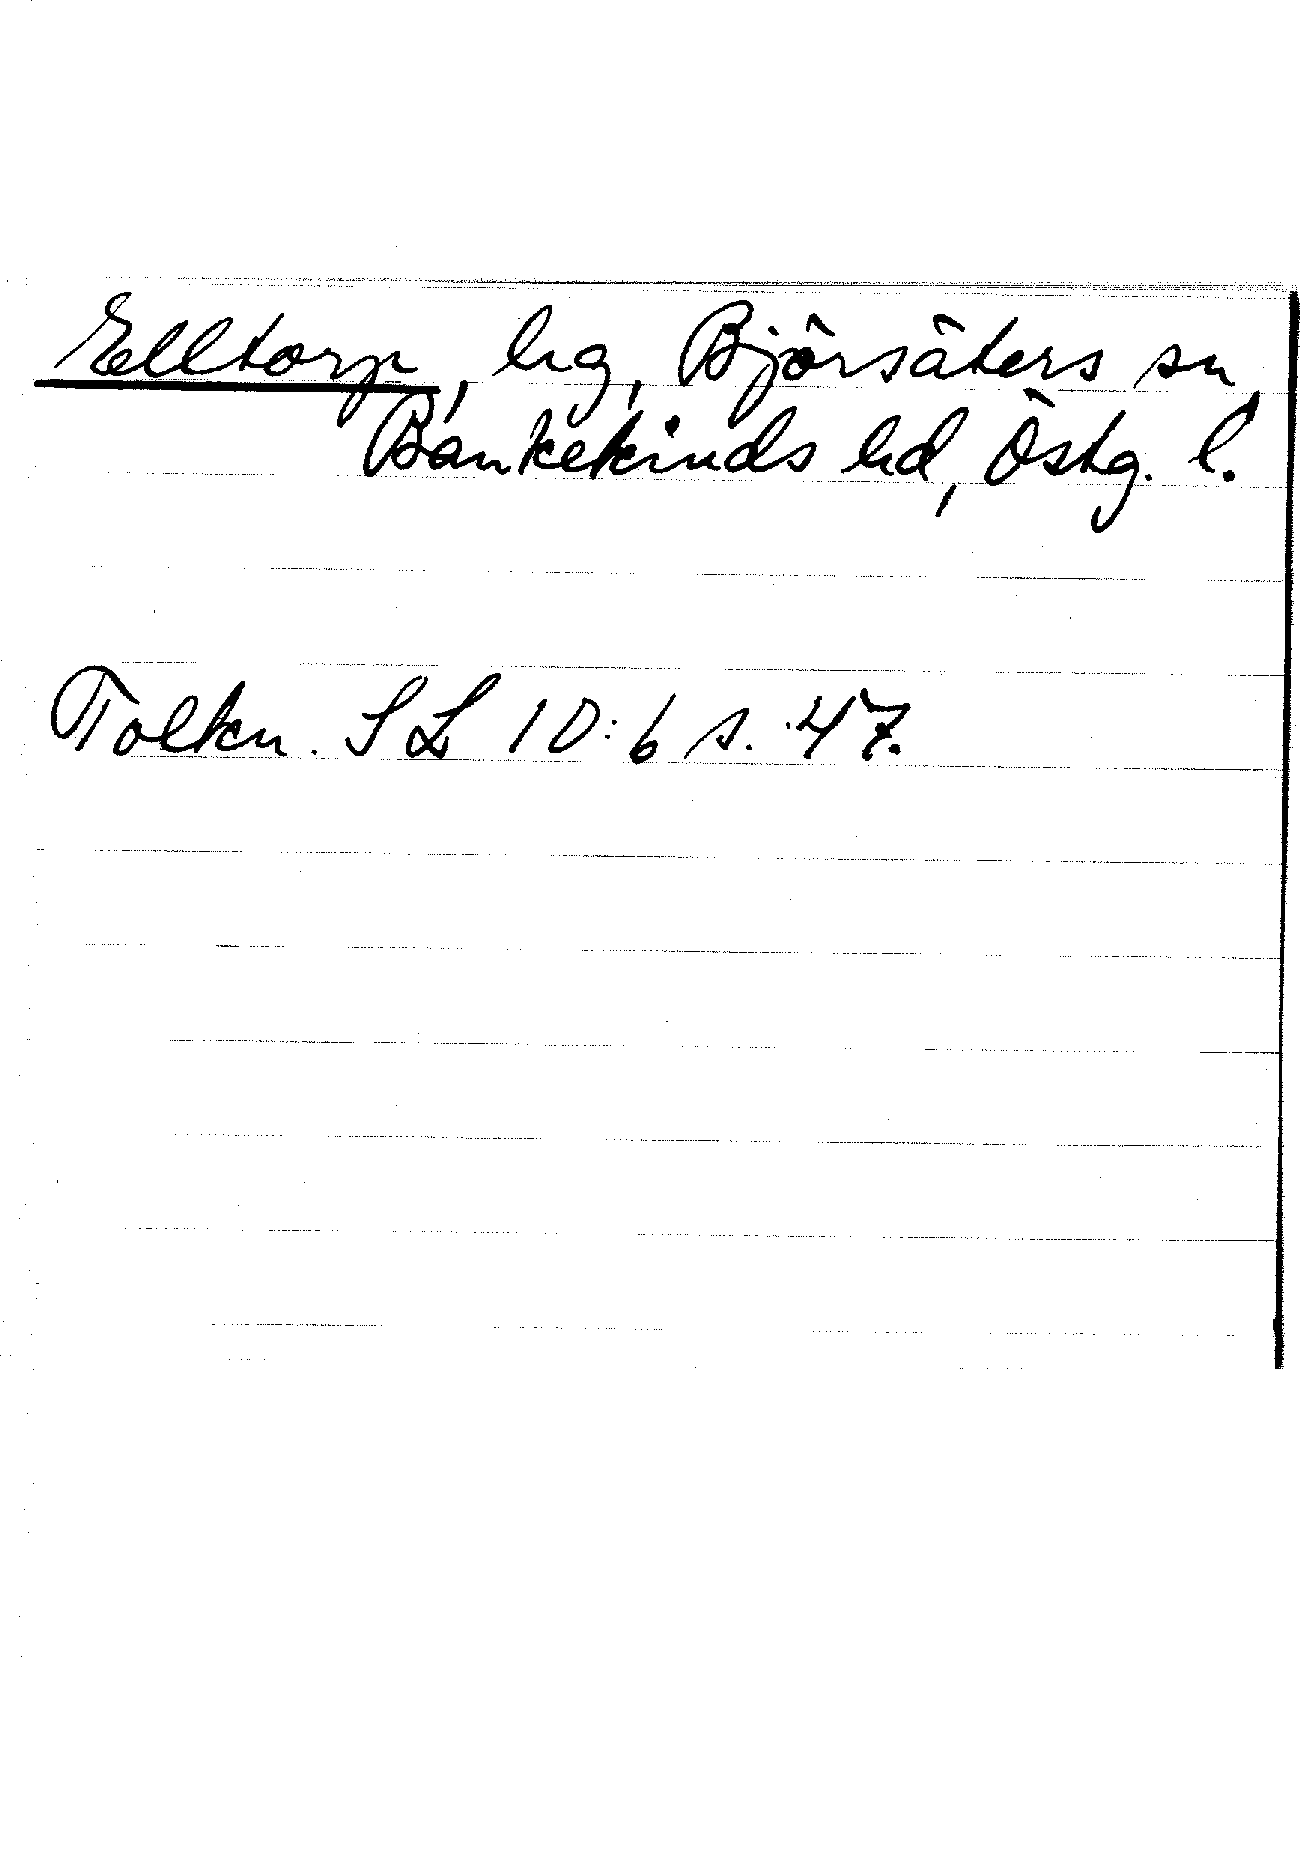 Elltorp, hg, Björsäters sn,
Bankekinds hd, Östg. l.
Tolkn. SL 10:6 s. 47.